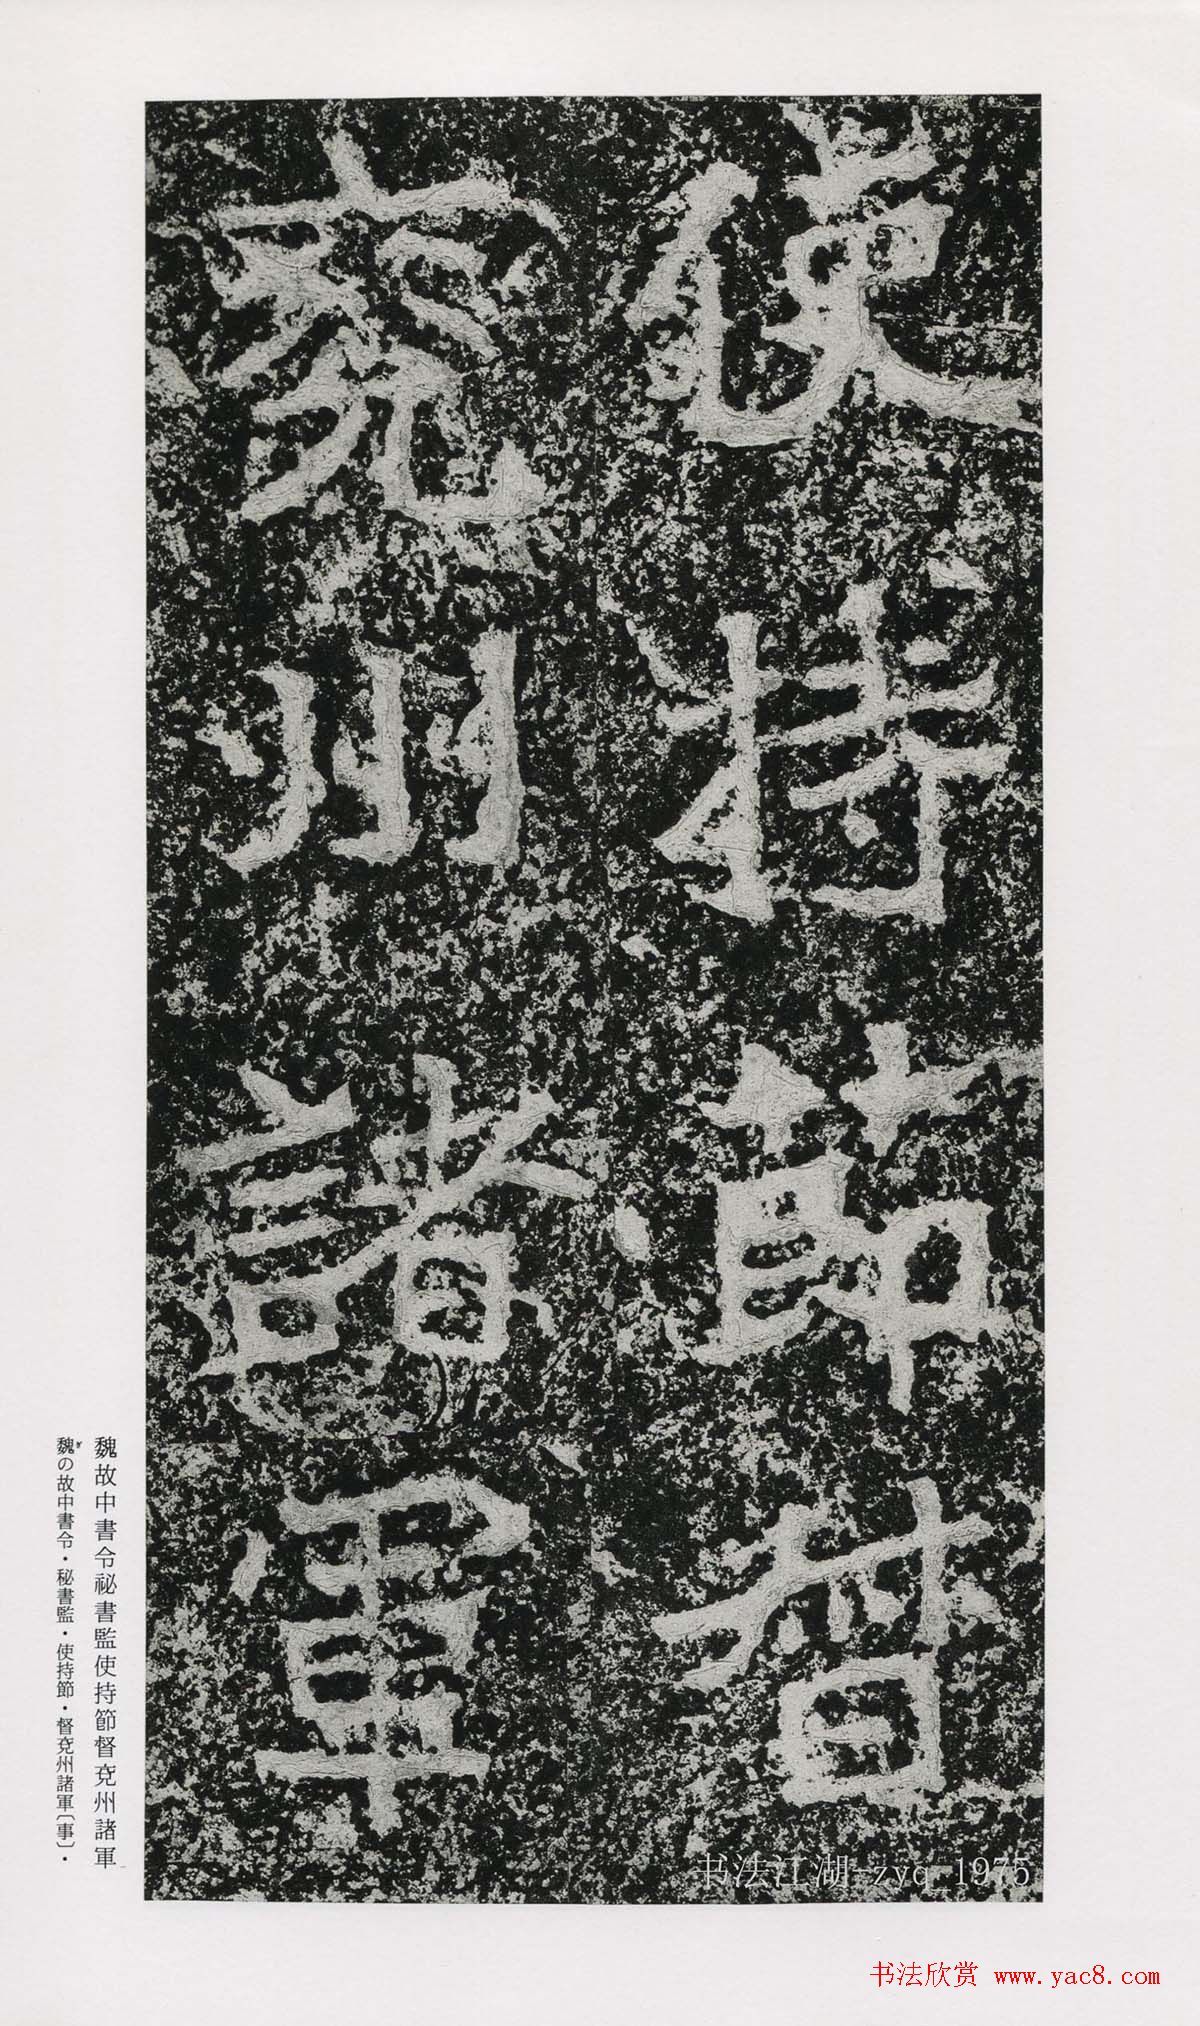 使持節督
兗州諸軍
魏故中書令祕書監使持節督兗州諸軍
魏の故中書令・秘書監・使持節・督兗州諸軍〔事〕・
ぎ
书法江湖-zyq_1975
书法欣赏 www.yac8.com